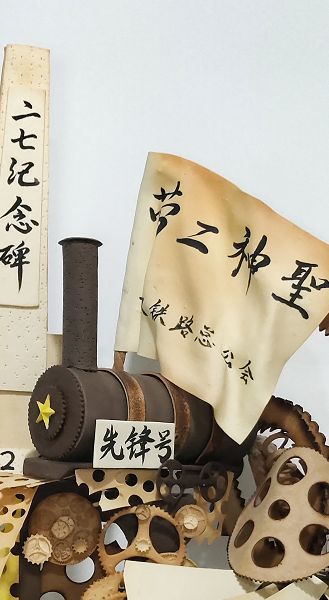 二七纪念碑
劳工神圣
铁路总公会
先锋号
2